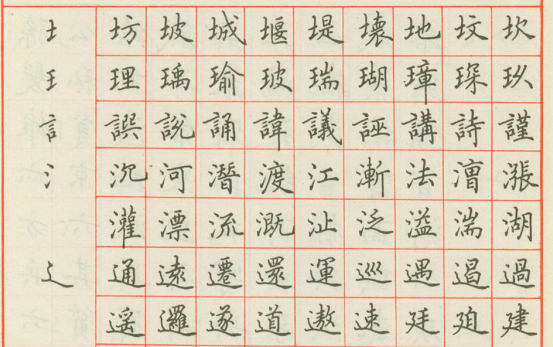 土 坊 坡 城 堰 堤 壞 地 坟 坎
王 理 瑀 瑜 玻 瑞 瑚 璋 琛 玖
言 誤 說 誦 諱 議 誣 講 詩 謹
氵 沉 河 潛 渡 江 漸 法 漕 漲
灌 漂 流 溉 沚 泛 溢 湍 湖
辶 通 遠 遷 還 運 巡 遇 遏 過
遥 邏 遂 道 遨 速 廷 建